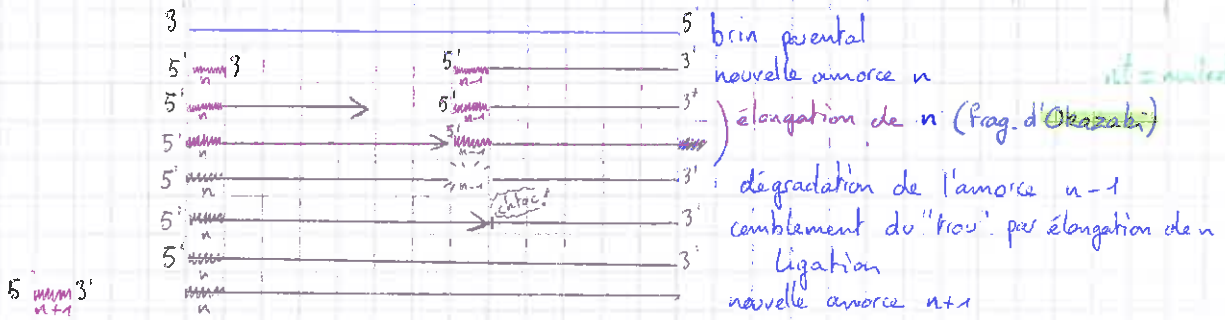 3 5' brin parental
5' 3 5' 3' nouvelle amorce n
n n-1
5' 5' 3' élongation de n (frag. d'Okazaki)
n n-1
5' 5' 3'
n n-1
5' n-1 3' dégradation de l'amorce n-1
n
chtac!
5' 3' comblement du "trou" par élongation de n
n
5' 3' Ligation
n
5 3' nouvelle amorce n+1
n+1 n